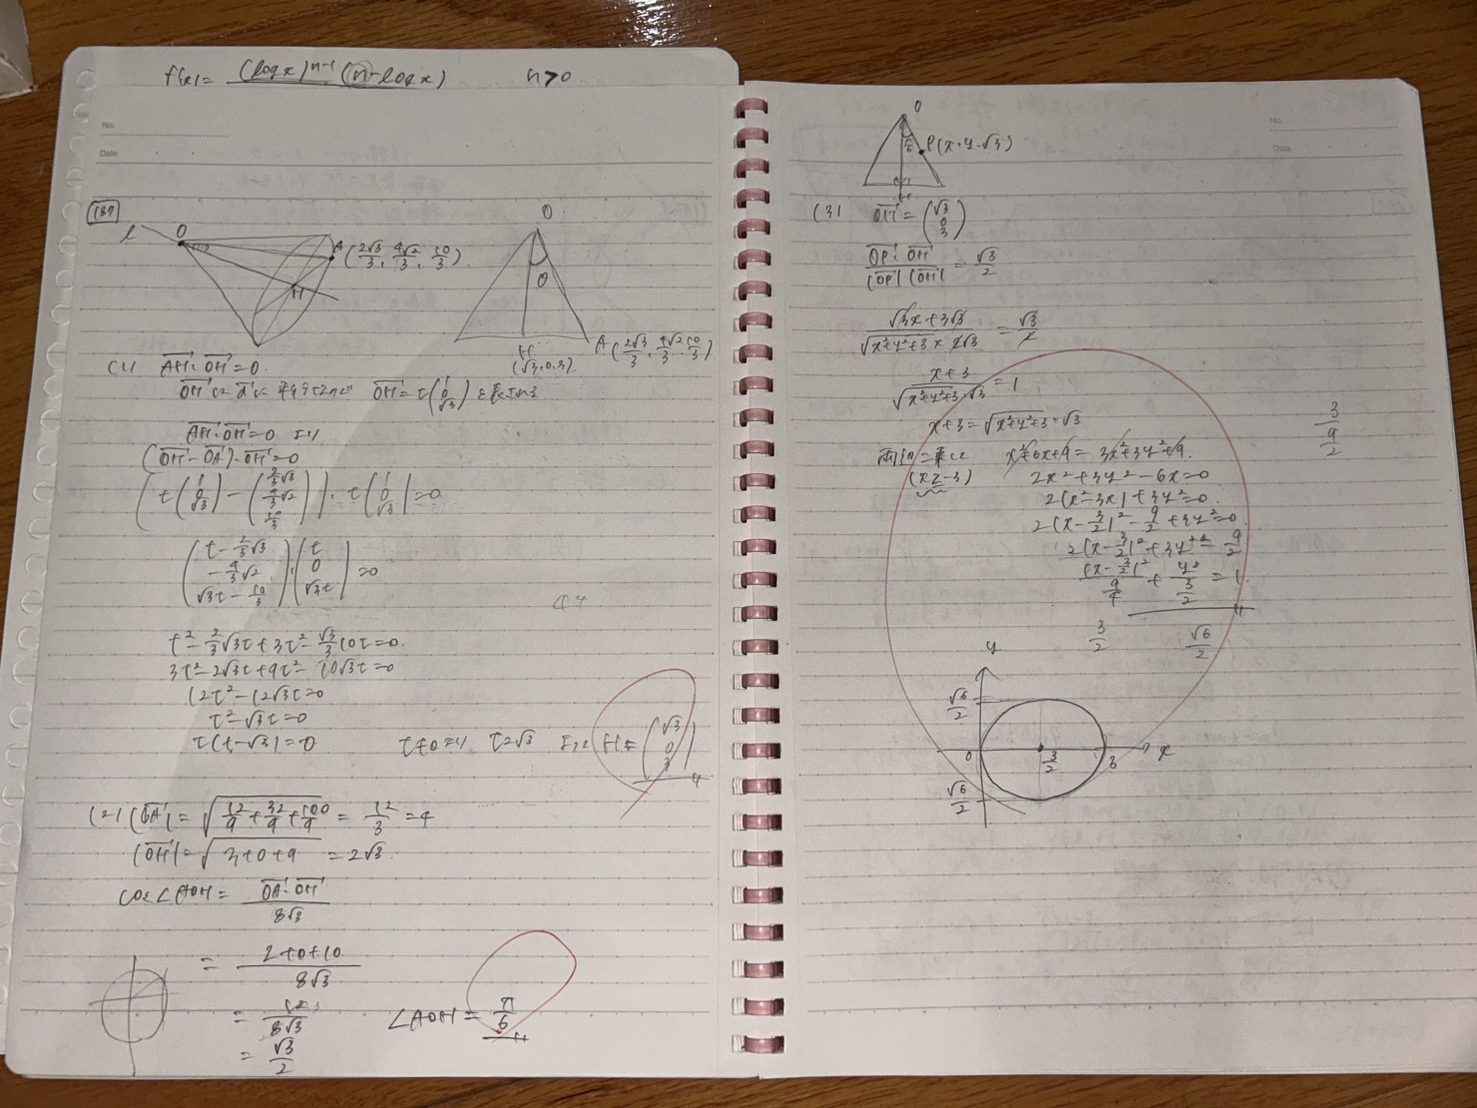 f(x) = (log x)^{n-1} (n - log x)　n > 0
No.
Date
187
l　O　A (2√3/3, 4√2/3, 10/3)
H
O
θ
H (√3, 0, 3)　A (2√3/3, 4√2/3, 10/3)
(1) AH・OH = 0
AH・OH = 0 より
(OH - OA)・OH = 0
(t(1, 0, √3) - (2/3√3, 4/3√2, 10/3))・t(1, 0, √3) = 0
(t - 2/3√3, -4/3√2, √3t - 10/3)・(t, 0, √3t) = 0
t² - 2/3√3t + 3t² - √3/3 10t = 0
3t² - 2√3t + 9t² - 10√3t = 0
12t² - 12√3t = 0
t² - √3t = 0
t(t - √3) = 0　t ≠ 0 より t = √3 よって H = (√3, 0, 3)
(2) |OA| = √(12/9 + 32/9 + 100/9) = 12/3 = 4
|OH| = √(3 + 0 + 9) = 2√3
cos∠AOH = OA・OH / 8√3
= 2 + 0 + 10 / 8√3
= 12 / 8√3
= √3/2
∠AOH = π/6
No.
Date
O
π/6　P(x, y, √3)
H
(3) OH = (√3, 0, 3)
OP・OH / |OP||OH| = √3/2
√3x + 3√3 / √(x²+y²+3) × 2√3 = √3/2
x + 3 / √(x²+y²+3)・√3 = 1
x + 3 = √(x²+y²+3)・√3
両辺二乗して　x² + 6x + 9 = 3x² + 3y² + 9
(x ≧ -3)　2x² + 3y² - 6x = 0
2(x² - 3x) + 3y² = 0
2(x - 3/2)² - 9/2 + 3y² = 0
2(x - 3/2)² + 3y² = 9/2
(x - 3/2)² / 9/4 + y² / 3/2 = 1
3/2　√6/2
3
9
2
y
√6/2
0　3/2　3　x
√6/2